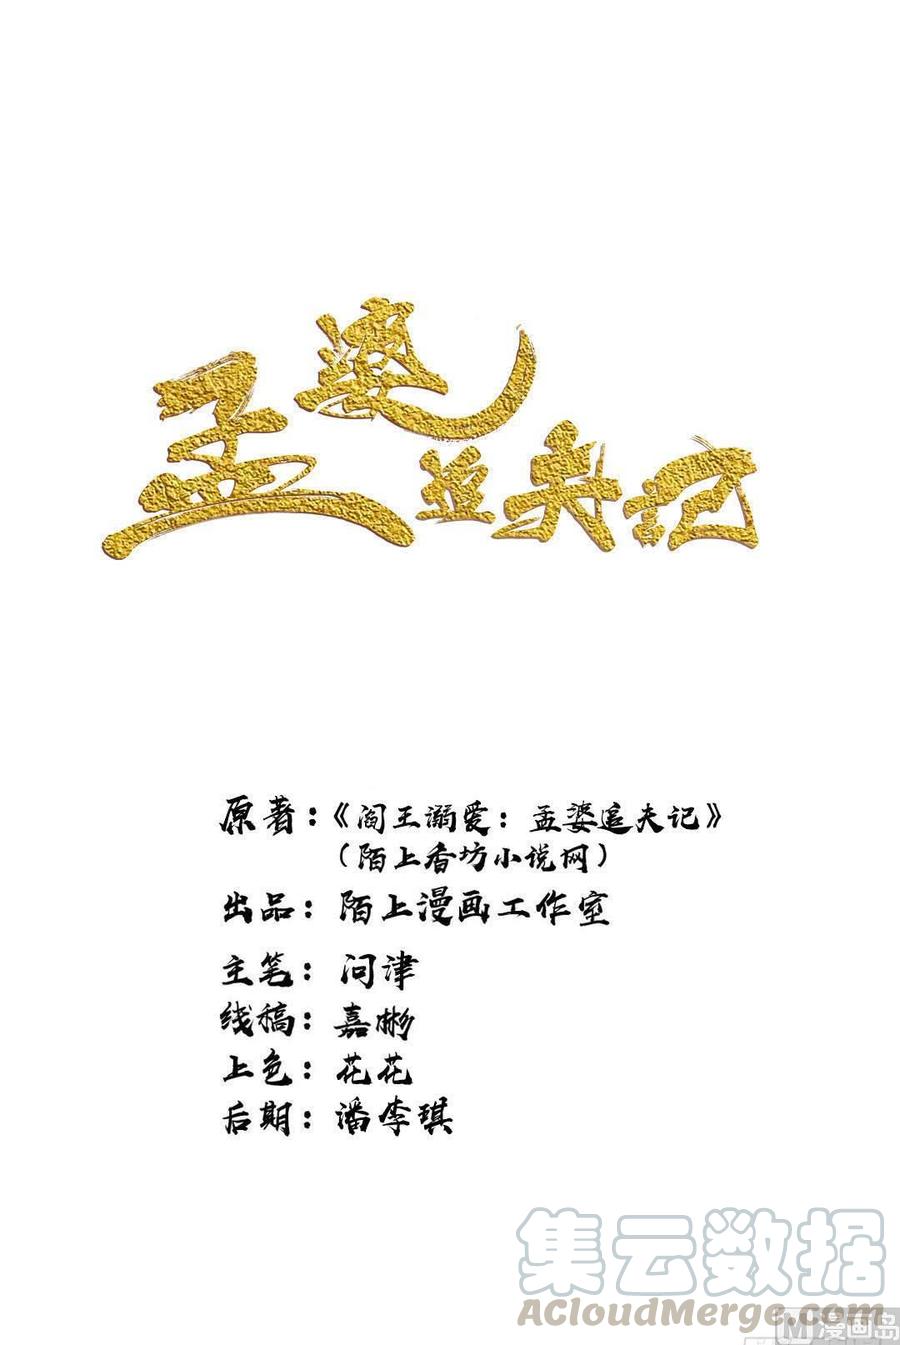 孟婆追夫记
原著：《阎王溺爱：孟婆追夫记》
（陌上香坊小说网）
出品：陌上漫画工作室
主笔：问津
线稿：嘉彬
上色：花花
后期：潘李琪
集云数据
ACloudMerge.com
M漫画岛